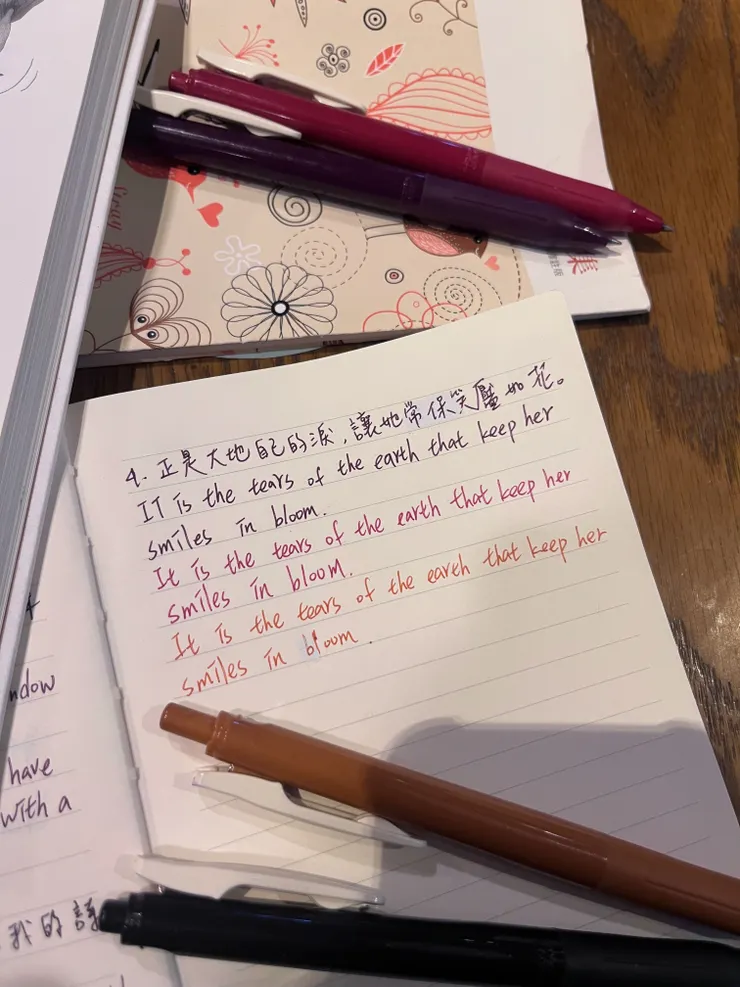 4. 正是大地自己的淚，讓她常保笑靨如花。
IT is the tears of the earth that keep her
smiles in bloom.
It is the tears of the earth that keep her
smiles in bloom.
It is the tears of the earth that keep her
smiles in bloom.
ndow
have
with a
我的
集